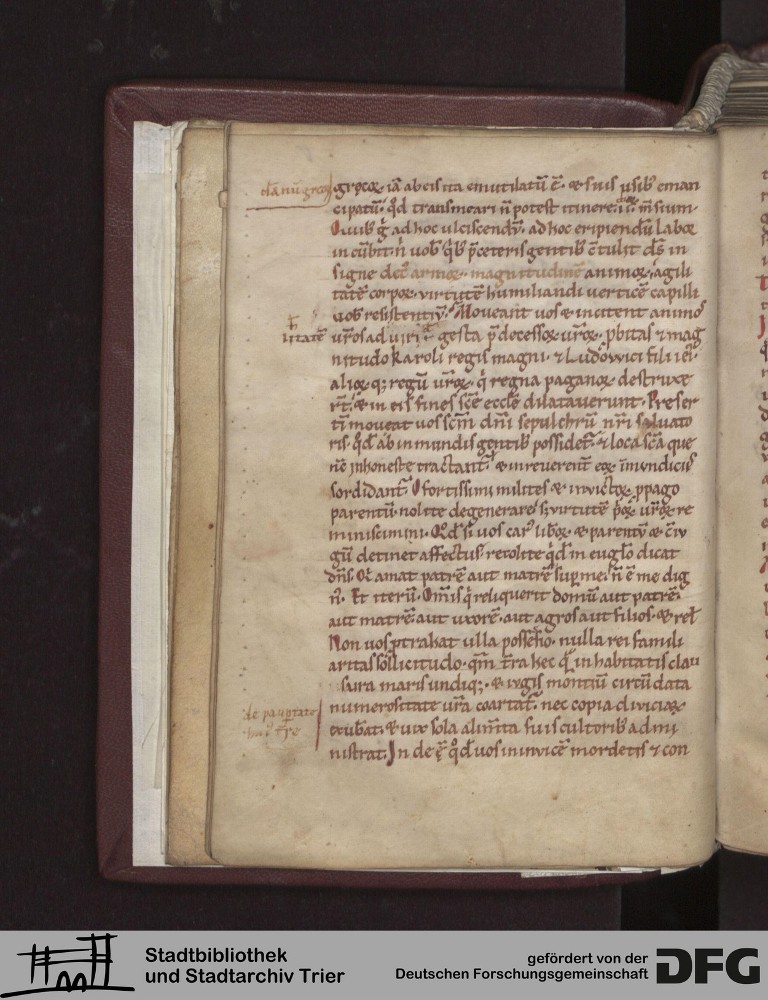 grecoꝝ iā ab eis ita emutilatū ē· ⁊ suis usibꝰ eman
cipatū· qd̄ transmeari n̄ potest itinere· ii· m̄sium·
Quibꝰ g̊ ad hoc ulciscendū· ad hoc eripiendū laboꝛ
incūbit· n̄ uob̄ qⁱbꝰ p̄ ceteris gentibꝰ ētulit ds̄ in
signe decꝰ armoꝝ· magnitudinē animoꝝ· agili
tatē corpoꝝ· virtutē humiliandi verticē capilli
uob̄ resistentiū· Moveant uos ⁊ incitent animos
ur̄os ad uiri gesta p̄decessoꝝ ur̄oꝝ· ꝓbitas ⁊ mag
litatē
nitudo karoli regis magni· ⁊ Ludowici filii iei·
alioꝝ q; regū ur̄oꝝ· qⁱ regna paganoꝝ destruxe
rt̄· ⁊ in eis fines sc̄e eccl̄e dilataverunt· Preser
tī moueat uos sc̄m dn̄i sepulchrū nr̄i saluato
ris· qd̄ ab inmundis gentibꝰ possidet̄· ⁊ loca sc̄a que
nē inhoneste tractant̄· ⁊ inreverent̄ eoꝝ īmundiciis
sordidant̄· O fortissimi milites ⁊ invictoꝝ ꝓpago
parentū· nolite degenerare· s; virtutē p̄oꝝ ur̄oꝝ re
miniscimini· Qd̄ si uos carꝰ lib̄oꝝ ⁊ parentū ⁊ c̄iu
gū detinet affectus· recolite qⁱd in euglō dicat
dn̄s· Qⁱ amat patrē aut matrē sup̄ me· n̄ ē me dig
nꝰ· Et iterū· Om̄is qⁱ reliquerit domū aut patrē·
aut matrē aut uxorē· aut agros aut filios· ⁊ rel̄
Non uos ꝓtrahat ulla possessio· nulla rei famili
aritas sollicitudo· qm̄ t̄ra hec quā inhabitatis clau
sura maris undiq;· ⁊ iugis montiū circūdata
numerositate ur̄a coartat̄· nec copia diviciaꝝ
exub̄at· ⁊ uix sola alim̄ta suis cultoribꝰ admi
de paup̄tate
nistrat· Inde ē· qd̄ uos in invicē mordetis ⁊ con
Stadtbibliothek
und Stadtarchiv Trier
gefördert von der
Deutschen Forschungsgemeinschaft
DFG